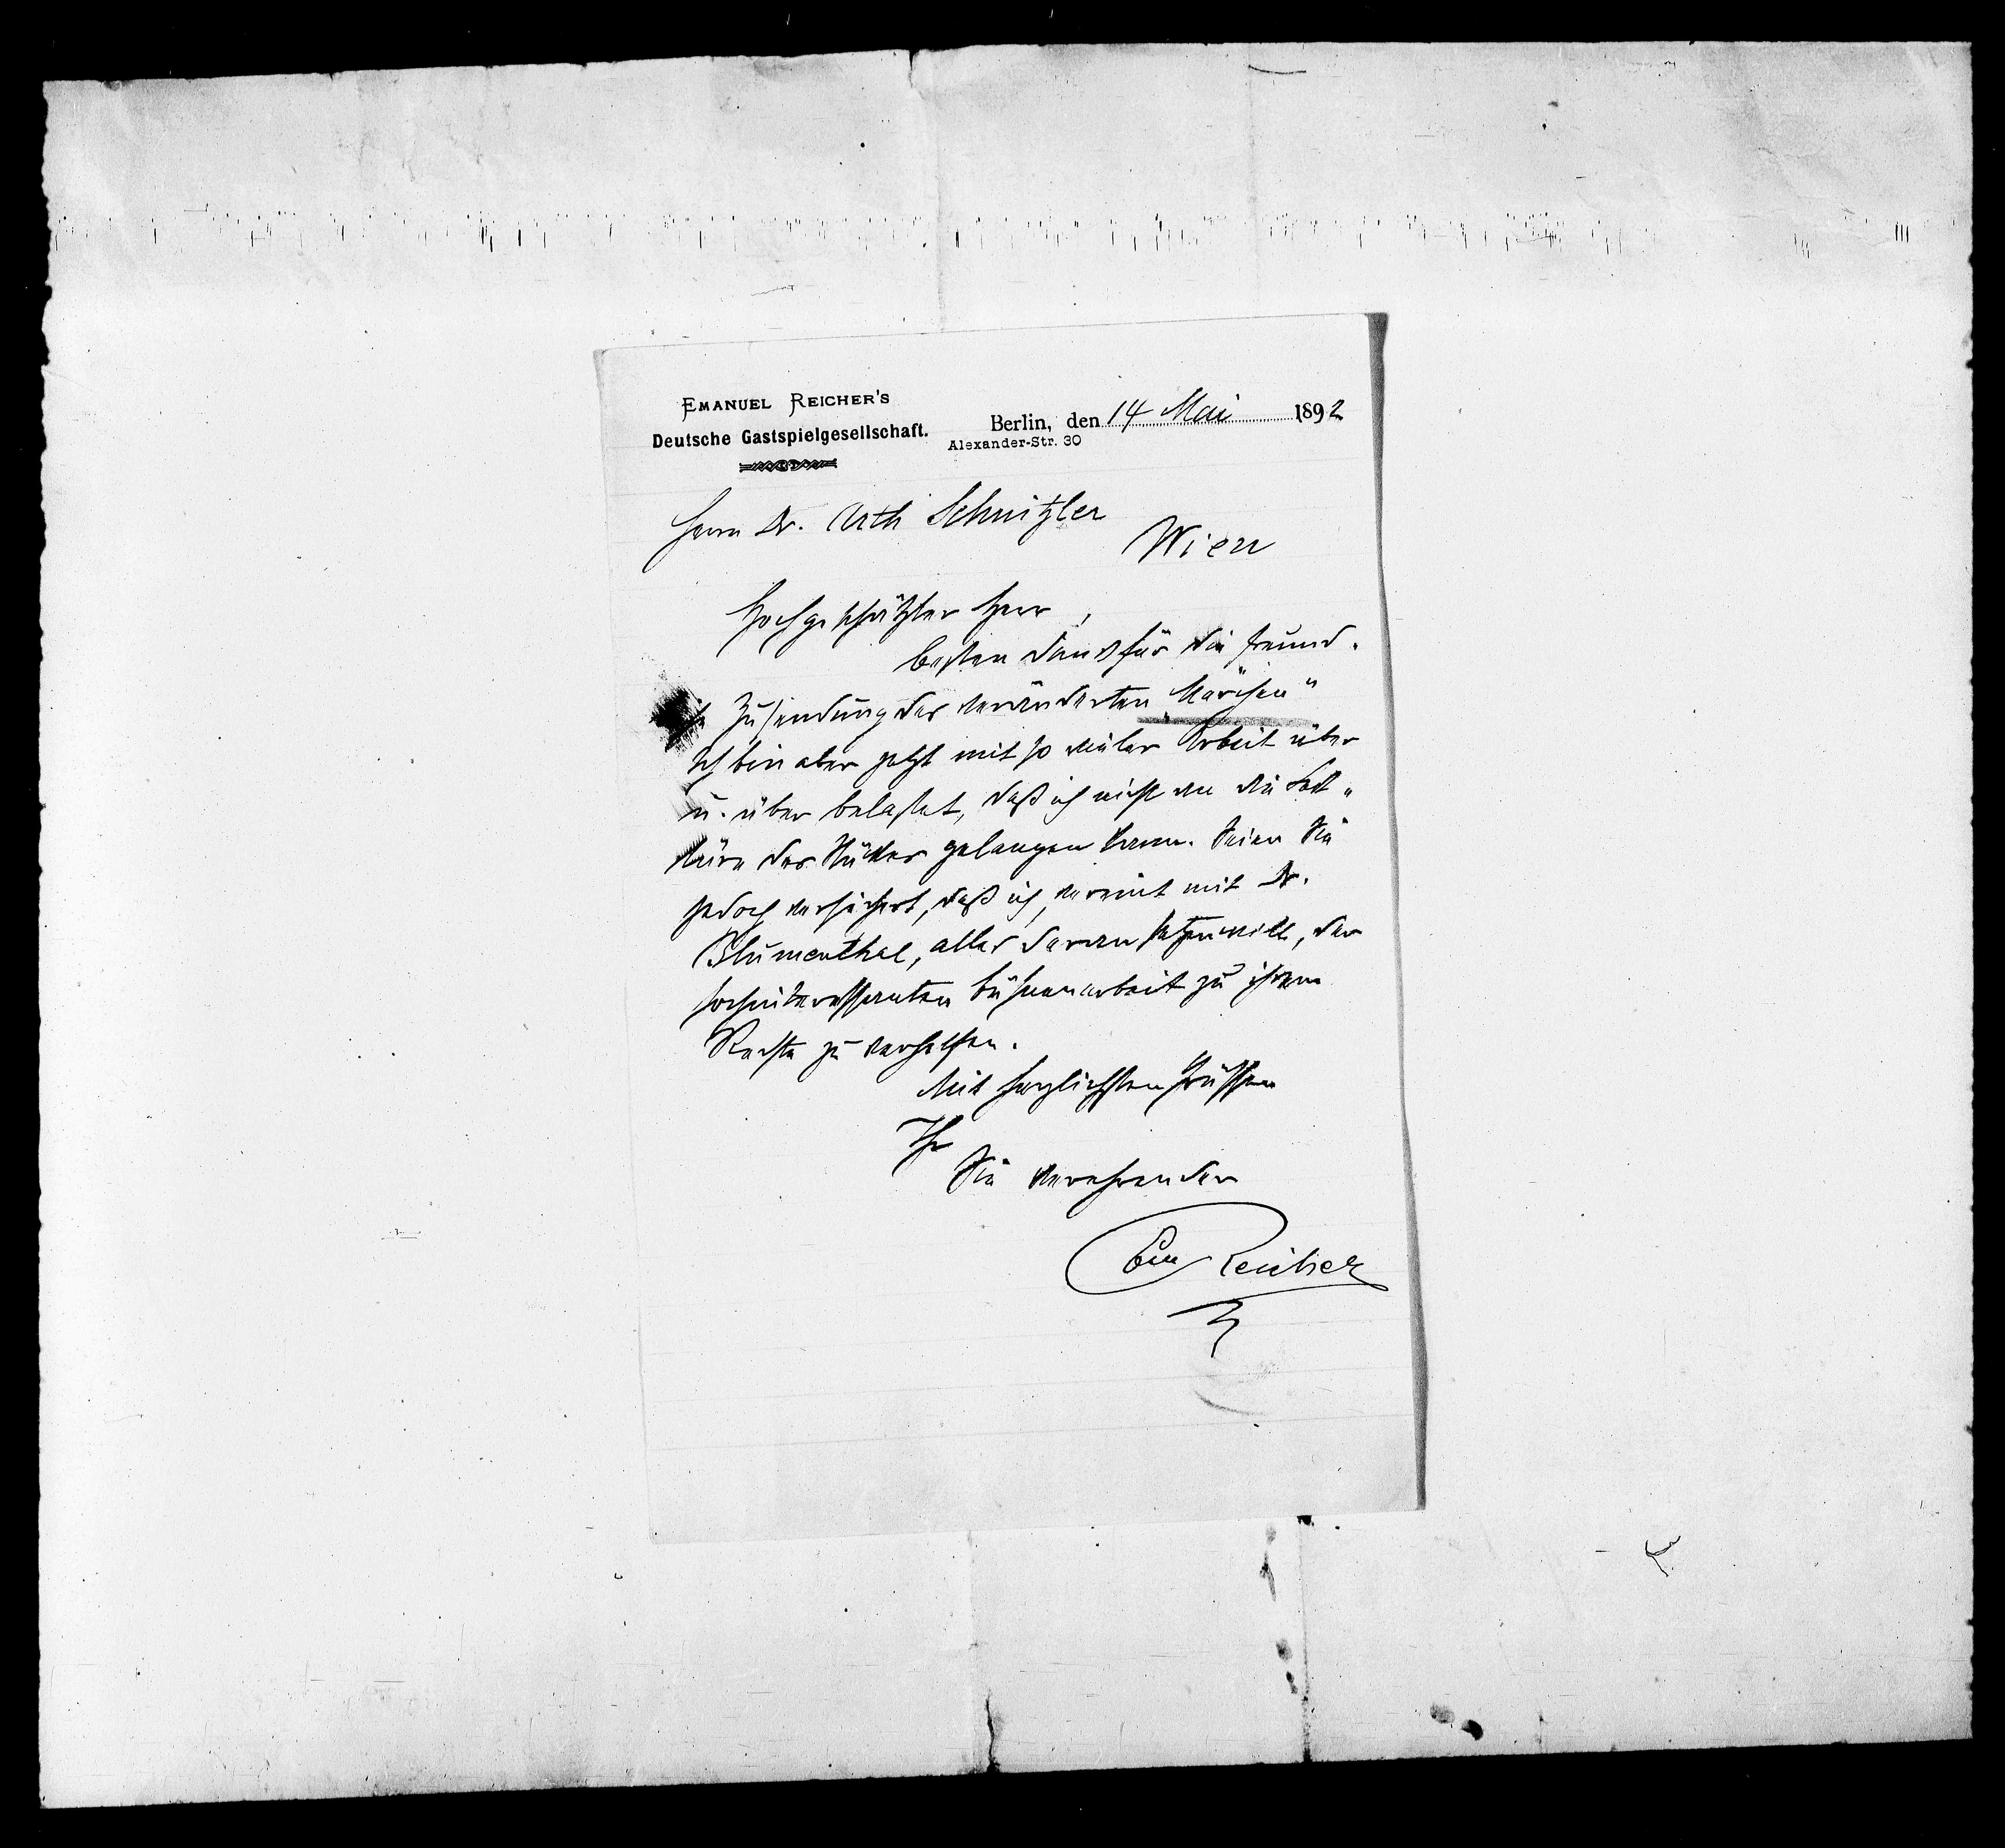 EMANUEL REICHER'S
Deutsche Gastspielgesellschaft.
Berlin, den 14 Mai 1892
Alexander-Str. 30
Herrn Dr. Arth Schnitzler
Wien
Hochgeschätzter Herr,
besten Dank für die freund-
Zusendung des veränderten „Märchen"
Ich bin aber jetzt mit so vieler Arbeit über
u. über belastet, daß ich nicht an die Lek-
türe des Stückes gelangen kann. Seien Sie
jedoch versichert, daß ich, vereint mit Dr.
Blumenthal, alles daran setzen will, der
hochinteressanten Bühnenarbeit zu ihrem
Rechte zu verhelfen.
Mit herzlichsten Grüssen
Ihr
Sie verehrender
Em Reicher